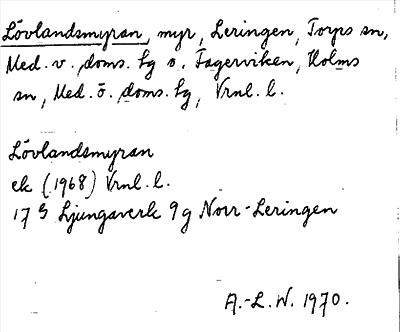 Lövlandsmyran, myr, Leringen, Torps sn,
Med. v. doms. hg o. Fagerviken, Holms
sn, Med. ö. doms. hg, Vrnl. l.
Lövlandsmyran
ek (1968) Vrnl. l.
17 G Ljungaverk 9 g Norr-Leringen
A.-L. W. 1970.